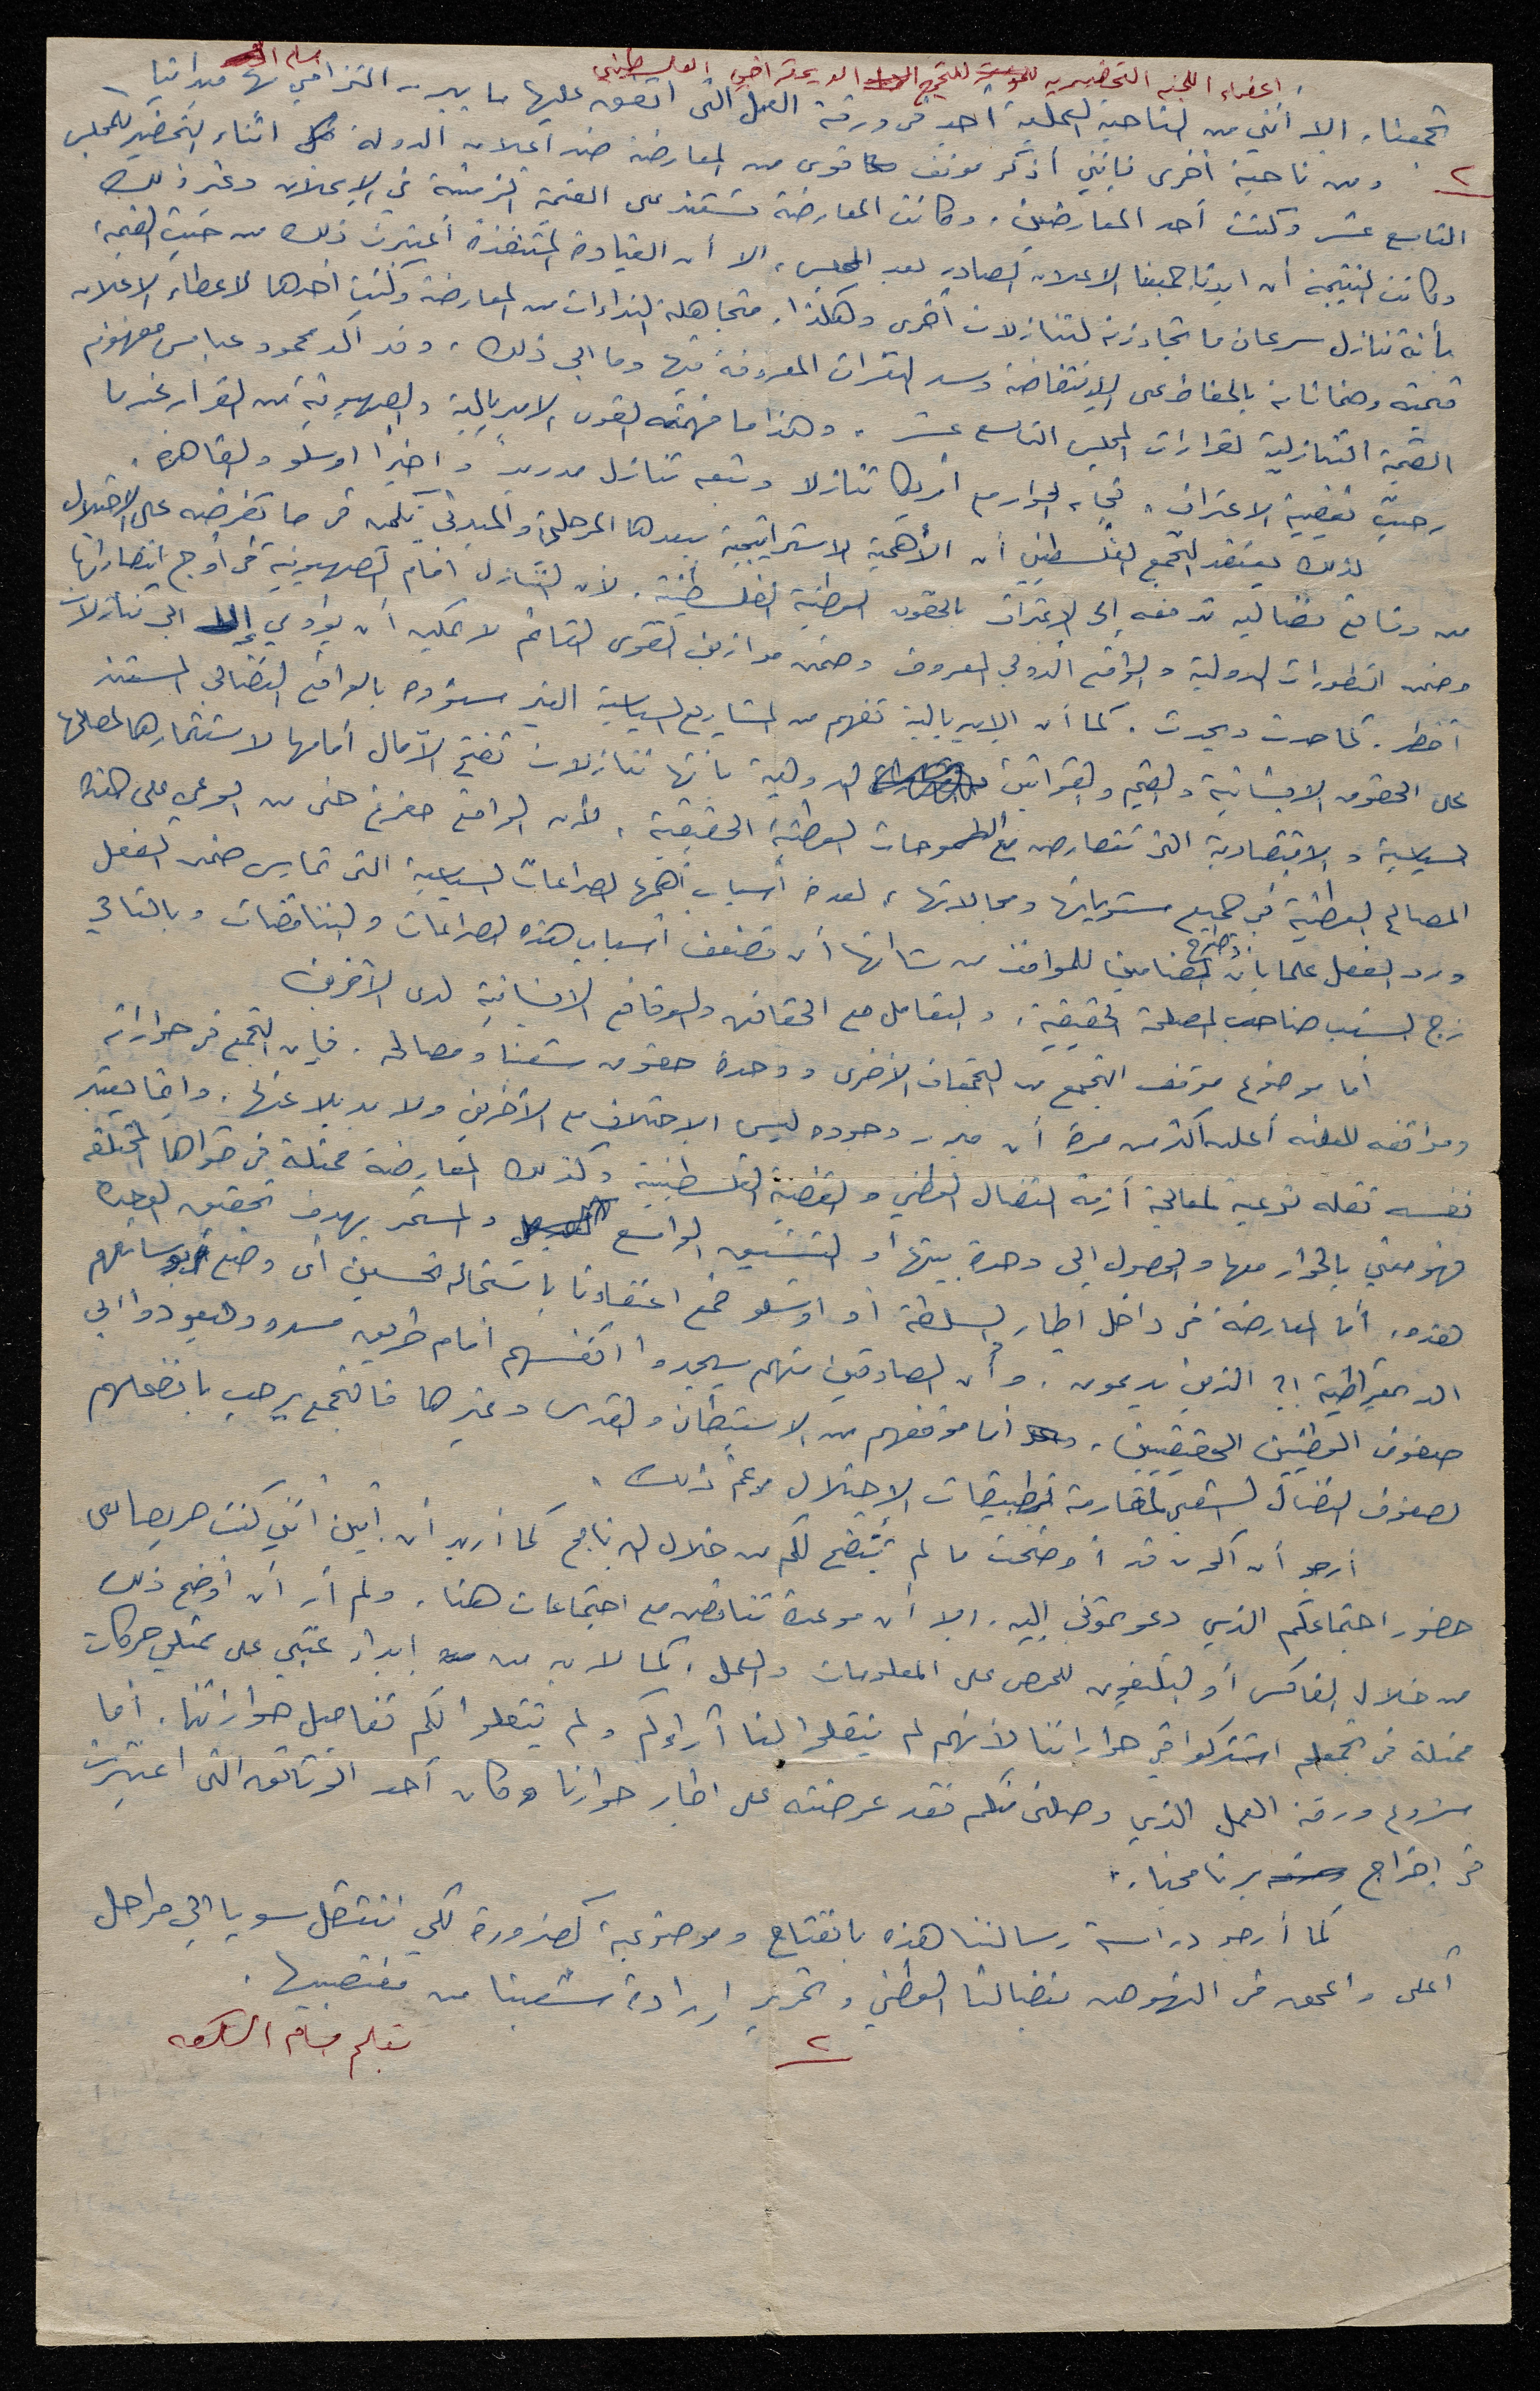 اعضاء اللجنه التحضيريه للتجمع الديمقراطي الفلسطيني
تجمعنا، الا أنني من الناحية العملية أجد في ورقة العمل التي اتفق عليها ما يبرر التزامي بها ميدانيا
٢
ومن ناحية أخرى فإنني أذكر موقف قوى من المعارضة ضد اعلان الدولة أثناء التحضير للمجلس
التاسع عشر وكنت أحد المعارضين، وكانت المعارضة تستند على القيمة الزمنية في الإعلان وغير ذلك
وكانت النتيجة أن ايدنا جميعنا الاعلان الصادر بعد المجلس، الا أن القيادة المتنفذة أعتبرت ذلك من حيث القيمة
بأنه تنازل سرعان ما تجاوزته لتنازلات أخرى وهكذا، متجاهلة النداءات من المعارضة وكنت أحدها لاعطاء الاعلان
قيمته وضماناته بالحفاظ على الإنتفاضة وسد الثغرات المعروفة فيها وما الى ذلك، وقد أكد محمود عباس مفهوم
القيمة التنازلية لقرارات المجلس التاسع عشر، وهذا ما فهمته القوى الامبريالية والصهيونية من القرار عندما
رحبت بقضية الاعتراف، فجاء الحوار مع أمريكا تنازلا وتبعه تنازل مدريد وأخيرا اوسلو والقاهرة.
لذلك يعتقد التجمع الفلسطيني أن الأهمية الاستراتيجية ببعدها المرحلي والمبدئي يكمن في ما تفرضه على الاحتلال
من وقائع نضالية تدفعه إلى الإعتراف بالحقوق الوطنية الفلسطينية. لأن التنازل أمام الصهيونية في أوج انتصاراتها
وضمن التطورات الدولية والواقع الدولي المعروف وضمن موازين القوى القائم لا يمكن أن يؤدي إلا الى تنازلات
أخطر. كما حدث ويحدث. كما أن الإمبريالية تفهم من المشاريع السياسية الغير مسنودة بالواقع النضالي المستند
على الحقوق الانسانية والقيم والقوانين الدولية بأنها تنازلات تفتح الآمال أمامها لاستثمارها لمصالحها
السياسية والاقتصادية التي تتعارض مع الطموحات الوطنية الحقيقية، لأن الواقع مفرغ حتى من الوعي على هذه
المصالح الوطنية في جميع مستوياتها ومجالاتها، لعدة أسباب أهمها الصراعات السياسية التي تمارس ضمن الفعل
ورد الفعل علما بأن وضوح المضامين للمواقف من شأنها أن تضعف أسباب هذه الصراعات والتناقضات وبالتالي
زج الشعب صاحب المصلحة الحقيقية، والتعامل مع الحقائق والوقائع الانسانية لدى الآخرين
أما موضوع موقف التجمع من التجمعات الأخرى ووحدة حقوق شعبنا ومصالحه. فإن التجمع في حواراته
ومواقفه المعلنه أعلن أكثر من مرة أن مبرر وجوده ليس الإختلاف مع الآخرين ولا بديلا عنها. وانما يعتبر
نفسه نقله نوعية لمعالجة أزمة النضال الوطني والقضية الفلسطينية وكذلك المعارضة ممثلة في قواها المختلفة
فهو معني بالحوار معها والوصول إلى وحدة بينها أو التنسيق الواسع والمستمر بهدف تحقيق الوحدة
هذه. أما المعارضة في داخل اطار السلطة أو اوسلو فمع اعتقادنا باستحالة تحسين أي وضع بوسائلهم
الديمقراطية !؟ الذين يدعون. وأن الصادقين منهم سيجدوا أنفسهم أمام طريق مسدود ليعودوا إلى
صفوف الوطنيين الحقيقيين، أما موقفهم من الاستيطان والقدس وغيرها فالتجمع يرحب بانضمامهم
لصفوف النضال الشعبي لمقاومة تطبيقات الاحتلال رغم ذلك.
أرجو أن أكون قد أوضحت ما لم يتضح لكم من خلال البرنامج كما أريد أن أبين أنني كنت حريصا على
حضور اجتماعكم الذي دعوتموني إليه، إلا أن موعده تناقض مع اجتماعات هنا، ولم أر أن أوضح ذلك
من خلال الفاكس أو التلفون للحرص على المعلومات والعمل، كما لا بد من ابداء عتبي على ممثلي حركات
ممثلة في تجمعكم اشتركوا في حواراتنا لأنهم لم ينقلوا لنا آراءكم ولم ينقلوا لكم تفاصيل حواراتنا، أما
مشروع ورقة العمل الذي وصلني منكم فقد عرضته على اطار حوارنا وكان أحد الوثائق التي اعتبرت
في إخراج برنامجنا.
كما أرجو دراسة رسالتنا هذه بانفتاح وموضوعية كضرورة لكي ننتقل سويا الى مراحل
أعلى وأعمق في النهوض بنضالنا الوطني وتحرير إرادة شعبنا من مغتصبيها.
بقلم بسام الشكعه
٢